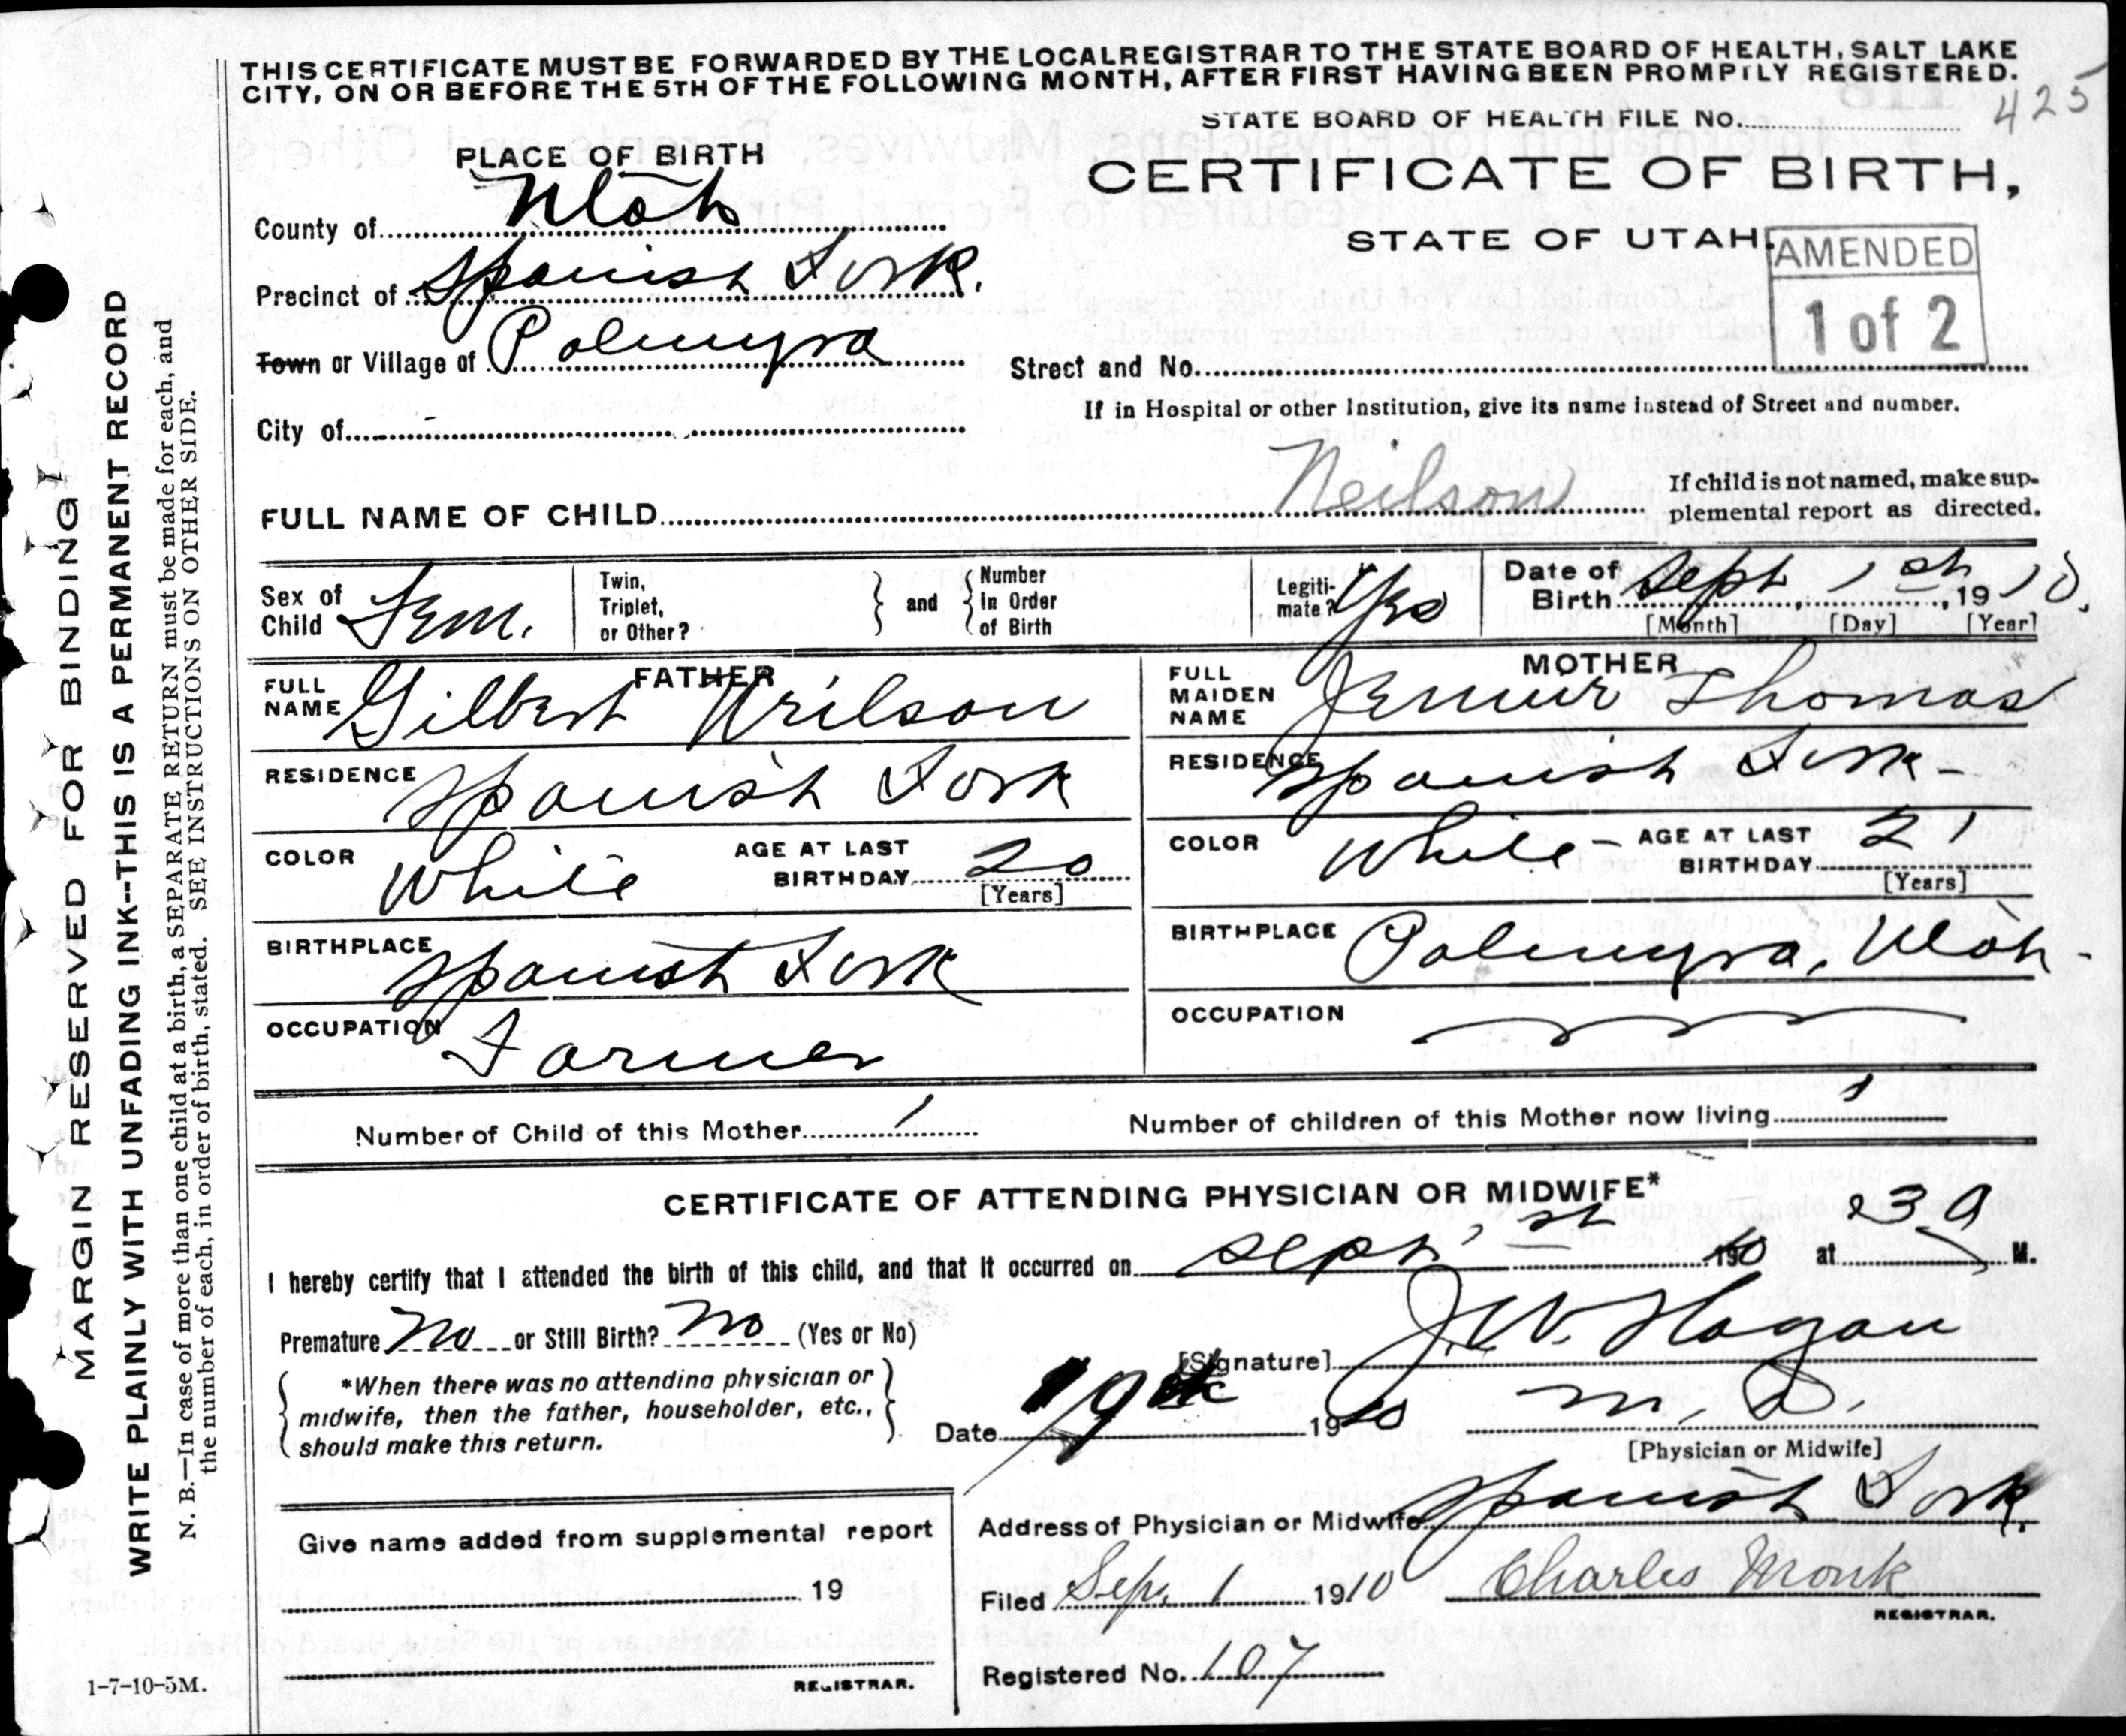 THIS CERTIFICATE MUST BE FORWARDED BY THE LOCAL REGISTRAR TO THE STATE BOARD OF HEALTH, SALT LAKE
CITY, ON OR BEFORE THE 5TH OF THE FOLLOWING MONTH, AFTER FIRST HAVING BEEN PROMPTLY REGISTERED.
STATE BOARD OF HEALTH FILE NO. 425
PLACE OF BIRTH
CERTIFICATE OF BIRTH,
County of Utah
STATE OF UTAH.
AMENDED
1 of 2
Precinct of Spanish Fork.
Town or Village of Palmyra
Street and No.
If in Hospital or other Institution, give its name instead of Street and number.
City of
FULL NAME OF CHILD Neilson
If child is not named, make sup-
plemental report as directed.
Sex of Child Fem.
Twin, Triplet, or Other?
and
Number in Order of Birth
Legiti-mate? Yes
Date of Birth Sept 1st, 1910.
[Month] [Day] [Year]
FATHER
FULL NAME Gilbert Neilson
RESIDENCE Spanish Fork
COLOR White AGE AT LAST BIRTHDAY 20
[Years]
BIRTHPLACE Spanish Fork
OCCUPATION Farmer
MOTHER
FULL MAIDEN NAME Jennie Thomas
RESIDENCE Spanish Fork -
COLOR White - AGE AT LAST BIRTHDAY 21
[Years]
BIRTHPLACE Palmyra, Utah -
OCCUPATION
Number of Child of this Mother 1
Number of children of this Mother now living 1
CERTIFICATE OF ATTENDING PHYSICIAN OR MIDWIFE*
I hereby certify that I attended the birth of this child, and that it occurred on Sept 1st 1910 at 3 A M.
Premature No or Still Birth? No (Yes or No)
[Signature] J. W. Hagan
*When there was no attending physician or
midwife, then the father, householder, etc.,
should make this return.
Date 1910
M. D.
[Physician or Midwife]
Address of Physician or Midwife Spanish Fork.
Give name added from supplemental report
19
REGISTRAR.
Filed Sep. 1 1910 Charles Monk
REGISTRAR.
Registered No. 107
1-7-10-5M.
MARGIN RESERVED FOR BINDING
WRITE PLAINLY WITH UNFADING INK--THIS IS A PERMANENT RECORD
N. B.—In case of more than one child at a birth, a SEPARATE RETURN must be made for each, and
the number of each, in order of birth, stated. SEE INSTRUCTIONS ON OTHER SIDE.